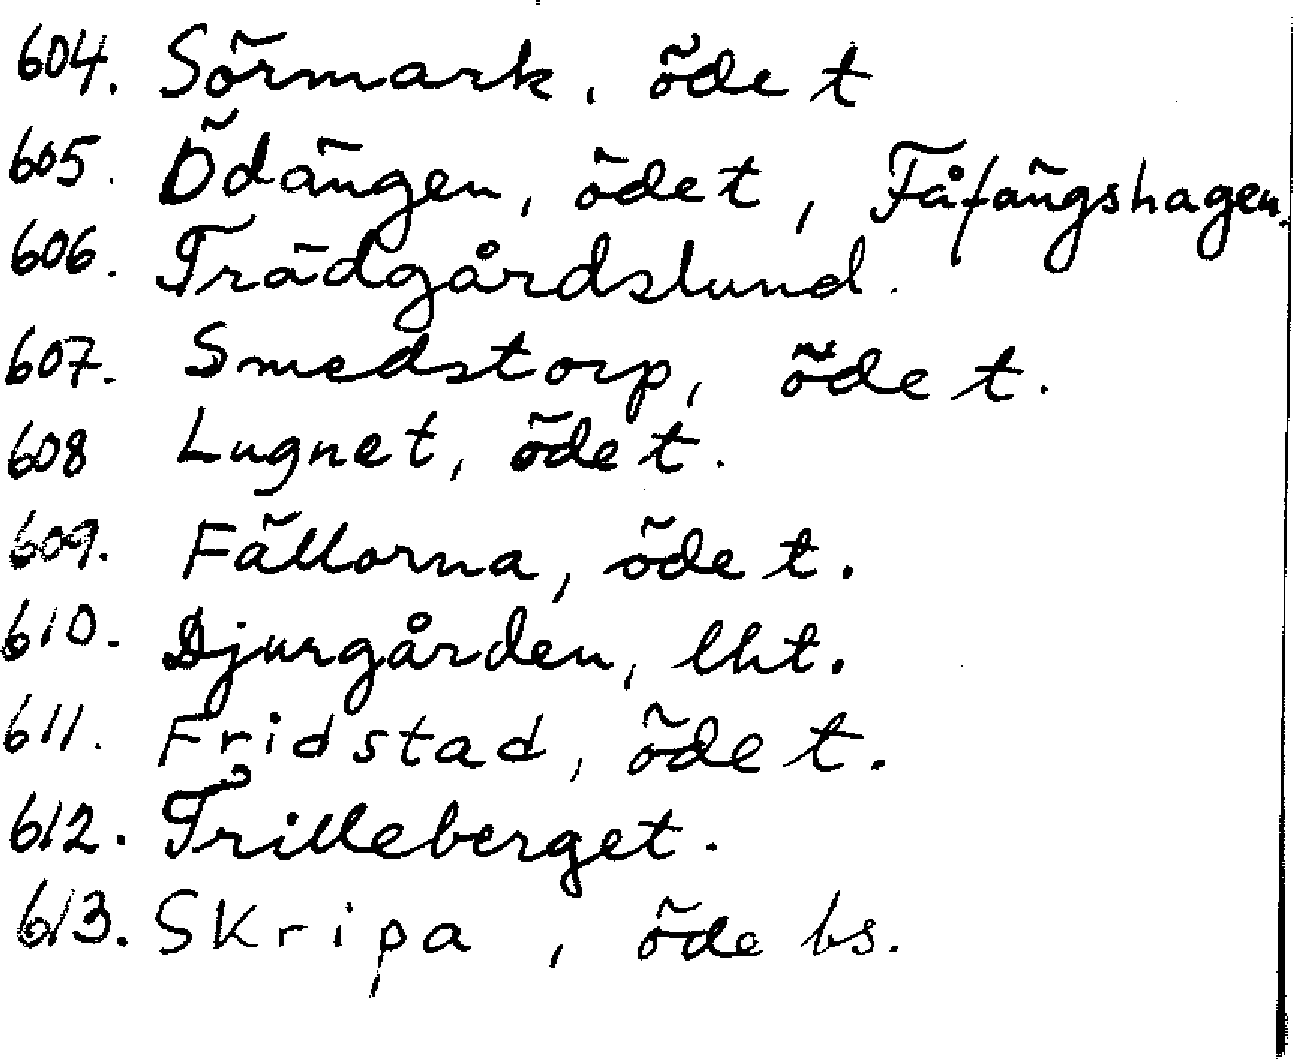 604. Sörmark, öde t
605. Ödängen, öde t, Fåfängshagen.
606. Trädgårdslund.
607. Smedstorp, öde t.
608 Lugnet, öde t.
609. Fällorna, öde t.
610. Djurgården, lht.
611. Fridstad, öde t.
612. Trilleberget.
613. Skripa, öde bs.